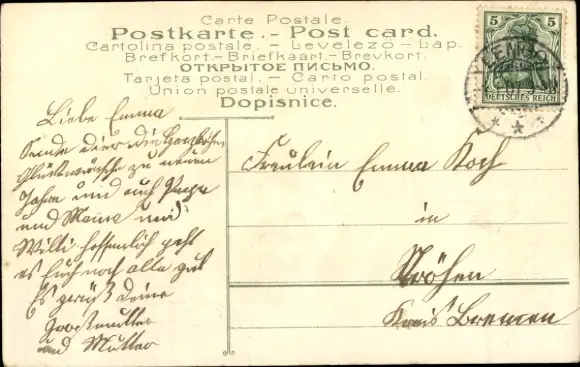 Carte Postale.
Postkarte.- Post card.
Cartolina postale. - Levelező - Lap.
Brefkort.-Briefkaart.-Brevkort.
ОТКРЫТОЕ ПИСЬМО.
Tarjeta postal. - Carto postal.
Union postale universelle.
Dopisnice.
5 5
DEUTSCHES REICH
Liebe Emma
Sende dier die
Glückwünsche zu neuen
Jahre und auch Papa
und Mama und
Willi hoffenlich geht
es Euch noch alle gut
Es grüßt deine
Großmutter
und Mutter
Fräulein Emma Koch
in
Ströhen
Kreis Bremen